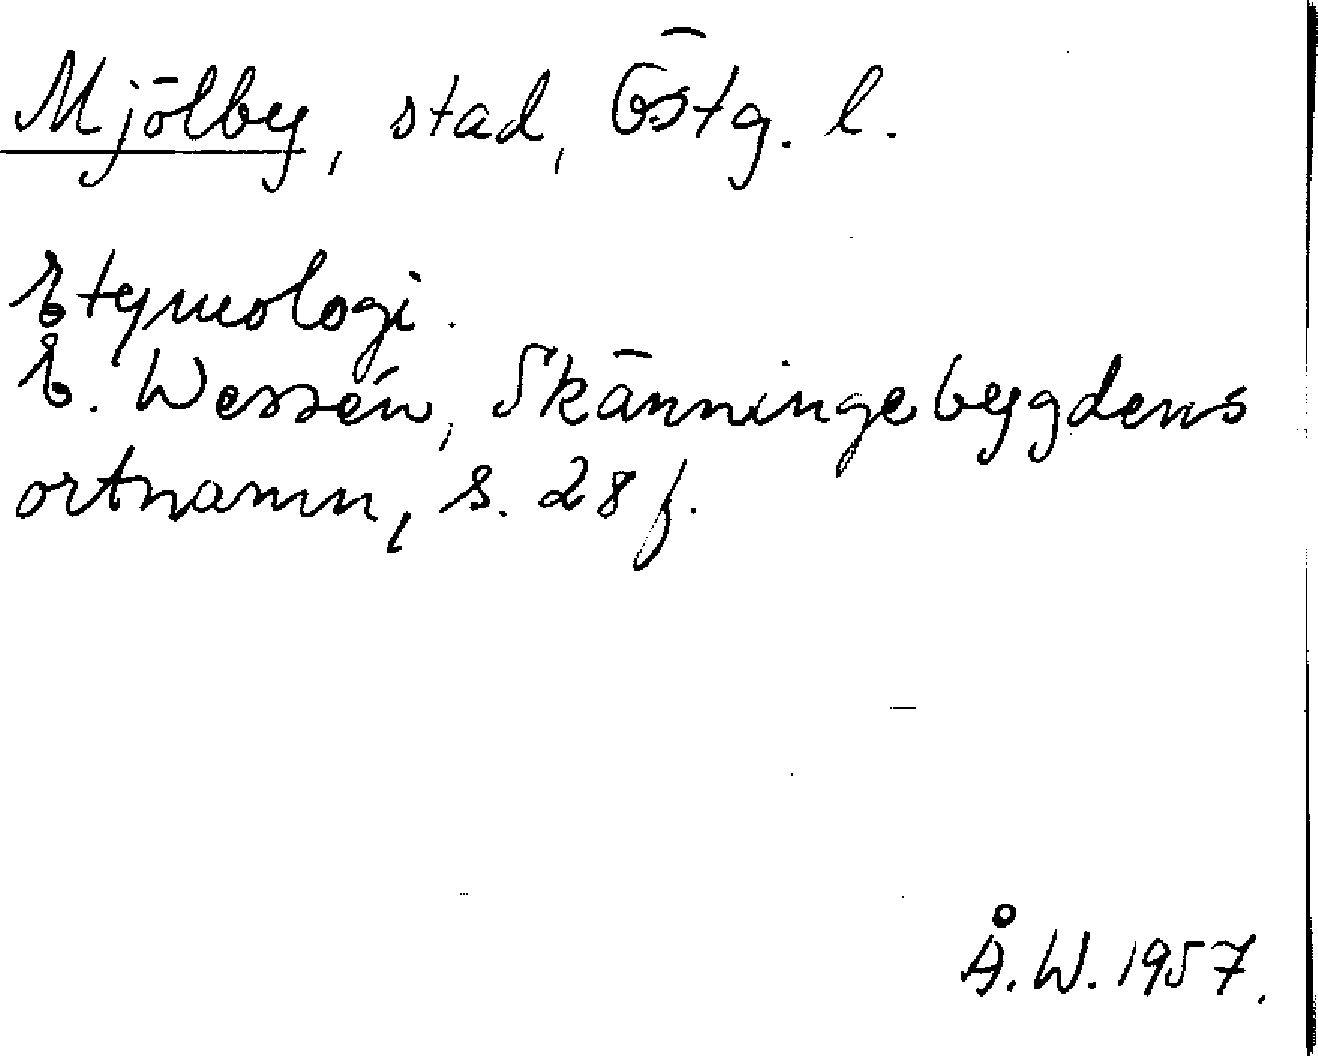 Mjölby, stad, Östg. l.
Etymologi.
E. Wessén, Skänningebygdens
ortnamn, s. 28 f.
Å. W. 1957.